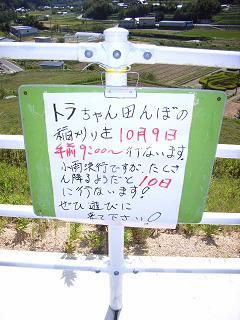 トラちゃん田んぼの
稲刈りを10月9日
午前9:00〜行ないます。
小雨決行ですが、たくさ
ん降るようだと10日
に行ないます!
ぜひ遊びに
来て下さい!